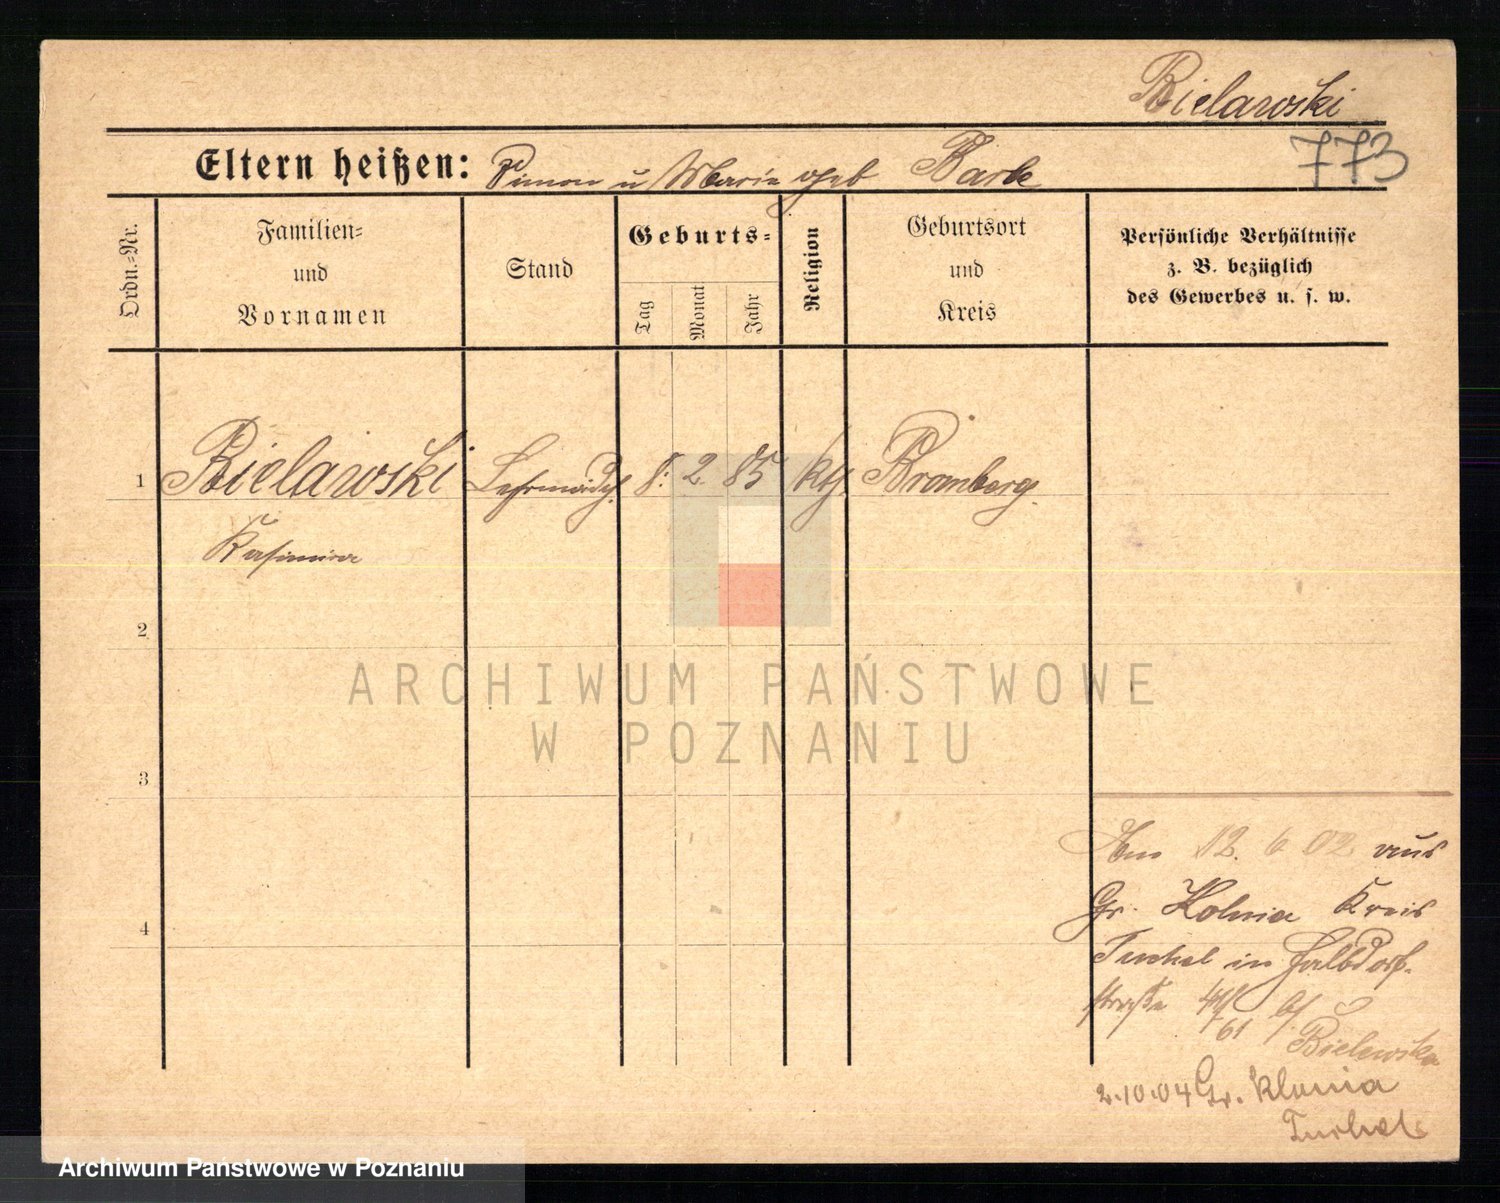 Bielawski
773
Eltern heißen: Simon u Marie geb Bark
Ordn.-Nr.
Familien-
und
Vornamen
Stand
Geburts-
Tag
Monat
Jahr
Religion
Geburtsort
und
Kreis
Persönliche Verhältnisse
z. B. bezüglich
des Gewerbes u. s. w.
1 Bielawski Lehrmädch. 8. 2. 85 kth. Bromberg.
Kasimira
2
ARCHIWUM PAŃSTWOWE
W POZNANIU
3
Am 12. 6 02 aus
Gr. Kolnia Kreis
4
Tuchel in Halbdorf-
straße
61 b/ Bielewska
2.10.04 Gr. Klonia
Tuchel
Archiwum Państwowe w Poznaniu